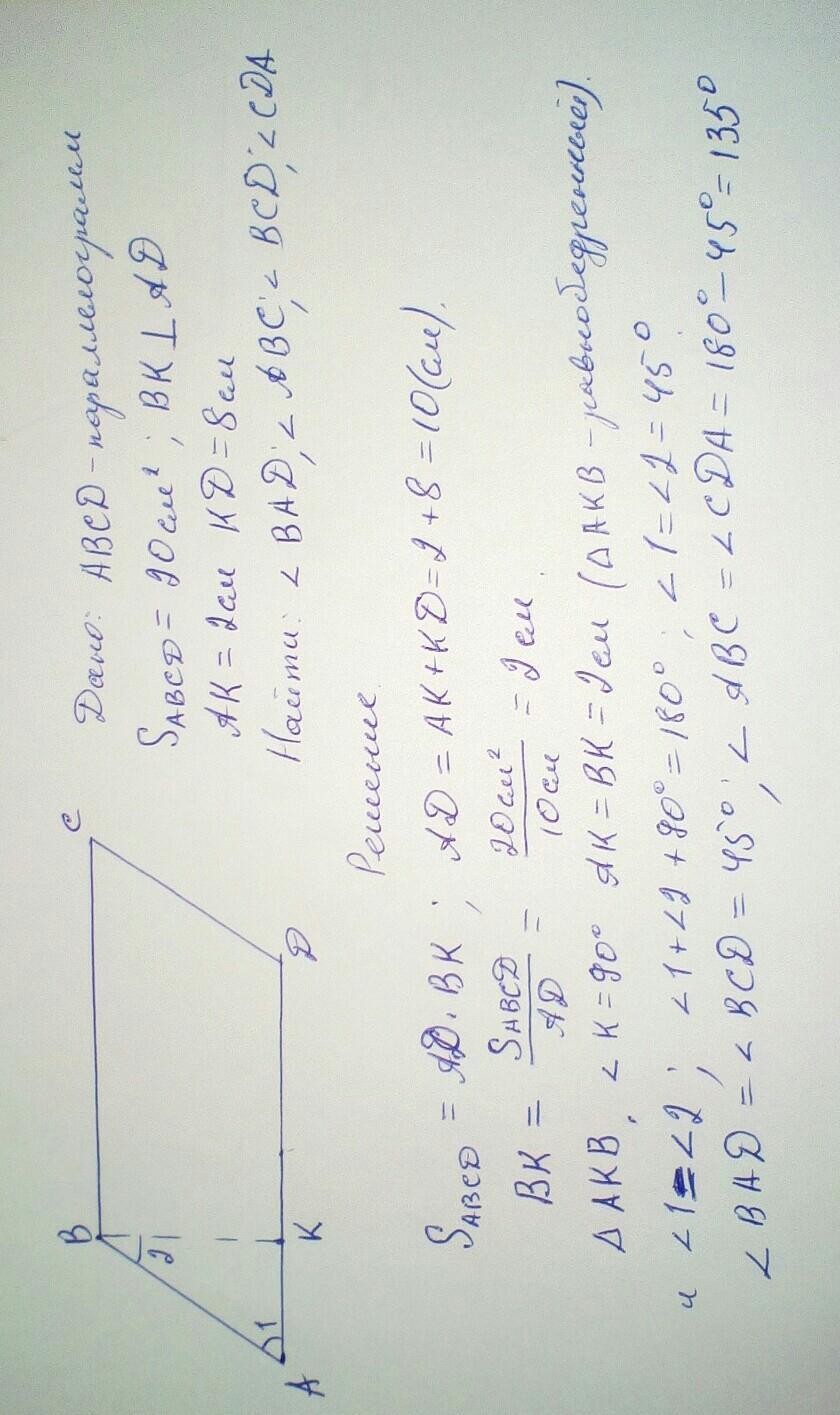 B
C
2
1
A
K
D
Дано: ABCD - параллелограмм
S_ABCD = 20 см²; BK ⊥ AD
AK = 2 см KD = 8 см
Найти: ∠BAD; ∠ABC; ∠BCD; ∠CDA
Решение
S_ABCD = AD · BK; AD = AK + KD = 2 + 8 = 10 (см).
BK = S_ABCD / AD = 20 см² / 10 см = 2 см.
△AKB, ∠K = 90° AK = BK = 2 см (△AKB - равнобедренный).
и ∠1 = ∠2; ∠1 + ∠2 + 90° = 180°; ∠1 = ∠2 = 45°
∠BAD = ∠BCD = 45°; ∠ABC = ∠CDA = 180° - 45° = 135°